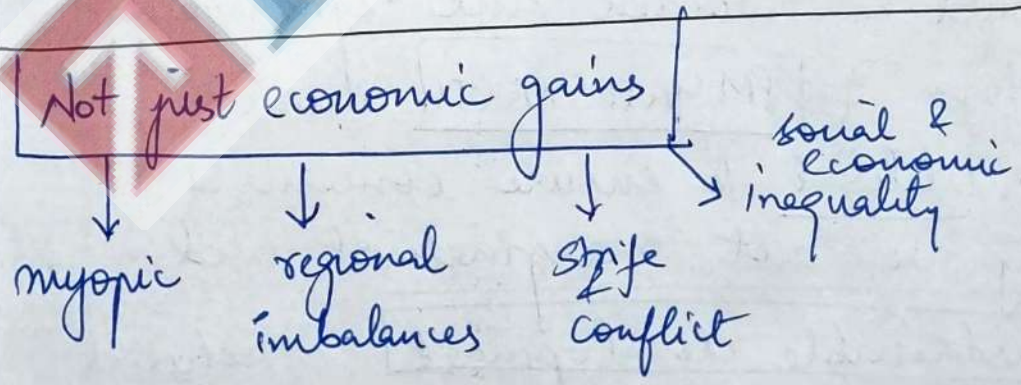 Not just economic gains
myopic
regional
imbalances
strife
&
conflict
social &
economic
inequality